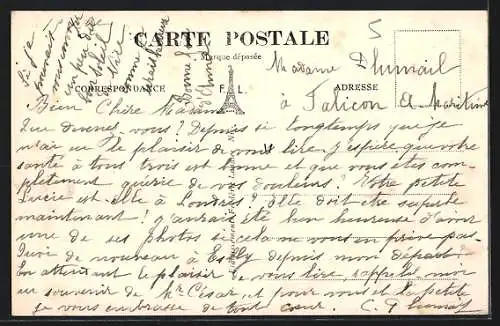 CARTE POSTALE
Marque déposée
CORRESPONDANCE
F. L.
ADRESSE
5
Madame Plumail
à Falicon A. Maritimes
Si je
pouvais
un peu de
bon soleil
Bien Chère Madame
Que devenez-vous? Depuis si longtemps que je
n'ai eu le plaisir de vous lire. J'espère que votre
santé à tous trois est bonne et que vous êtes com
plètement guérie de vos douleurs? Votre petite
est-elle à Londres? elle doit être superbe
maintenant! j'aurais été bien heureuse d'avoir
une de ses photos si cela ne vous en prive pas.
Quoi de nouveau à depuis mon départ?
En attendant le plaisir de vous lire, rappelez moi
au souvenir de Mr César, et pour vous et la petite
je vous embrasse de tout cœur. C.